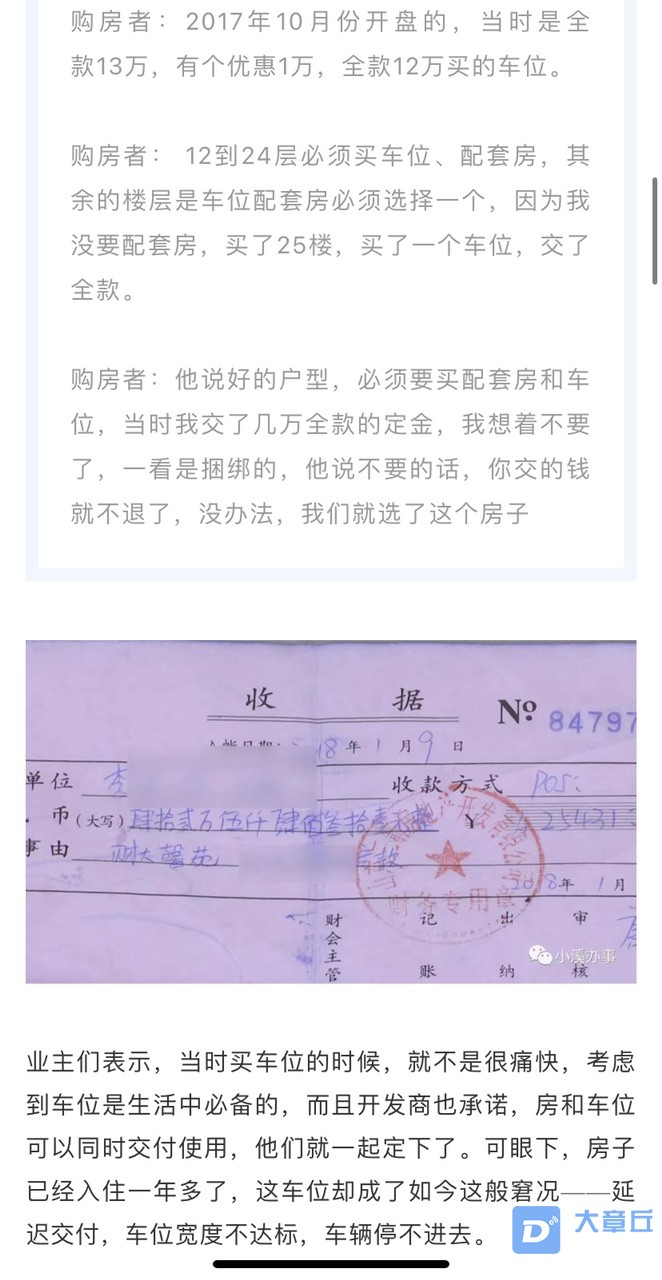 购房者：2017年10月份开盘的，当时是全
款13万，有个优惠1万，全款12万买的车位。
购房者： 12到24层必须买车位、配套房，其
余的楼层是车位配套房必须选择一个，因为我
没要配套房，买了25楼，买了一个车位，交了
全款。
购房者：他说好的户型，必须要买配套房和车
位，当时我交了几万全款的定金，我想着不要
了，一看是捆绑的，他说不要的话，你交的钱
就不退了，没办法，我们就选了这个房子
收 据 № 84797
18年1月9日
单位 李 收款方式 POS
币(大写) 肆拾贰万伍仟肆佰叁拾壹元整 ¥ 425431
事由 财大馨苑 房款
2018年1月
财会主管 记账 出纳 审核
小溪办事
业主们表示，当时买车位的时候，就不是很痛快，考虑
到车位是生活中必备的，而且开发商也承诺，房和车位
可以同时交付使用，他们就一起定下了。可眼下，房子
已经入住一年多了，这车位却成了如今这般窘况——延
迟交付，车位宽度不达标，车辆停不进去。
大章丘